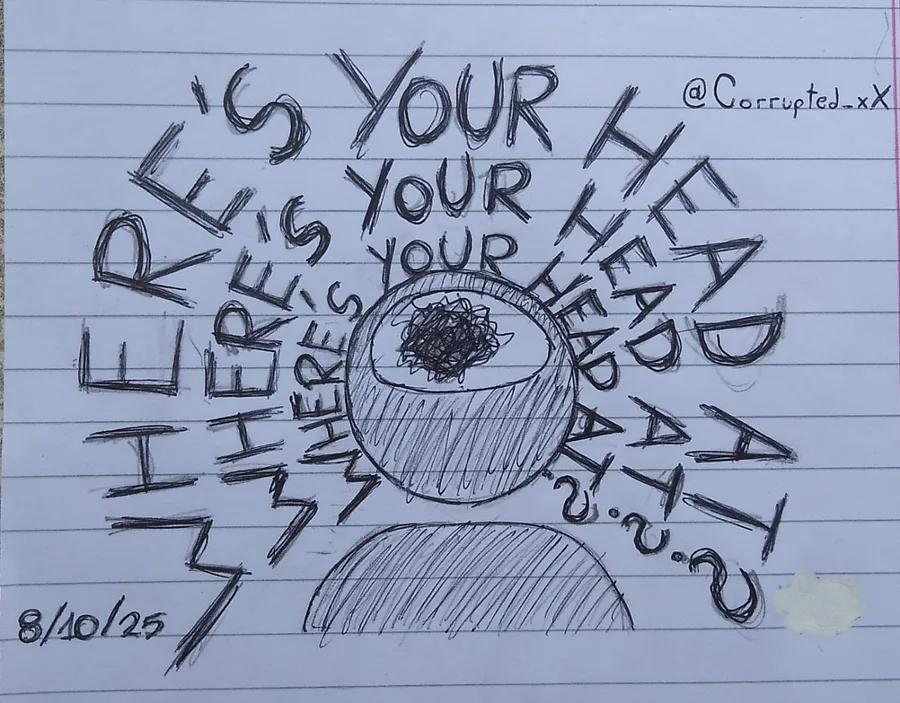 WHERE'S YOUR HEAD AT?
WHERE'S YOUR HEAD AT?
WHERE'S YOUR HEAD AT?
@Corrupted_xX
8/10/25